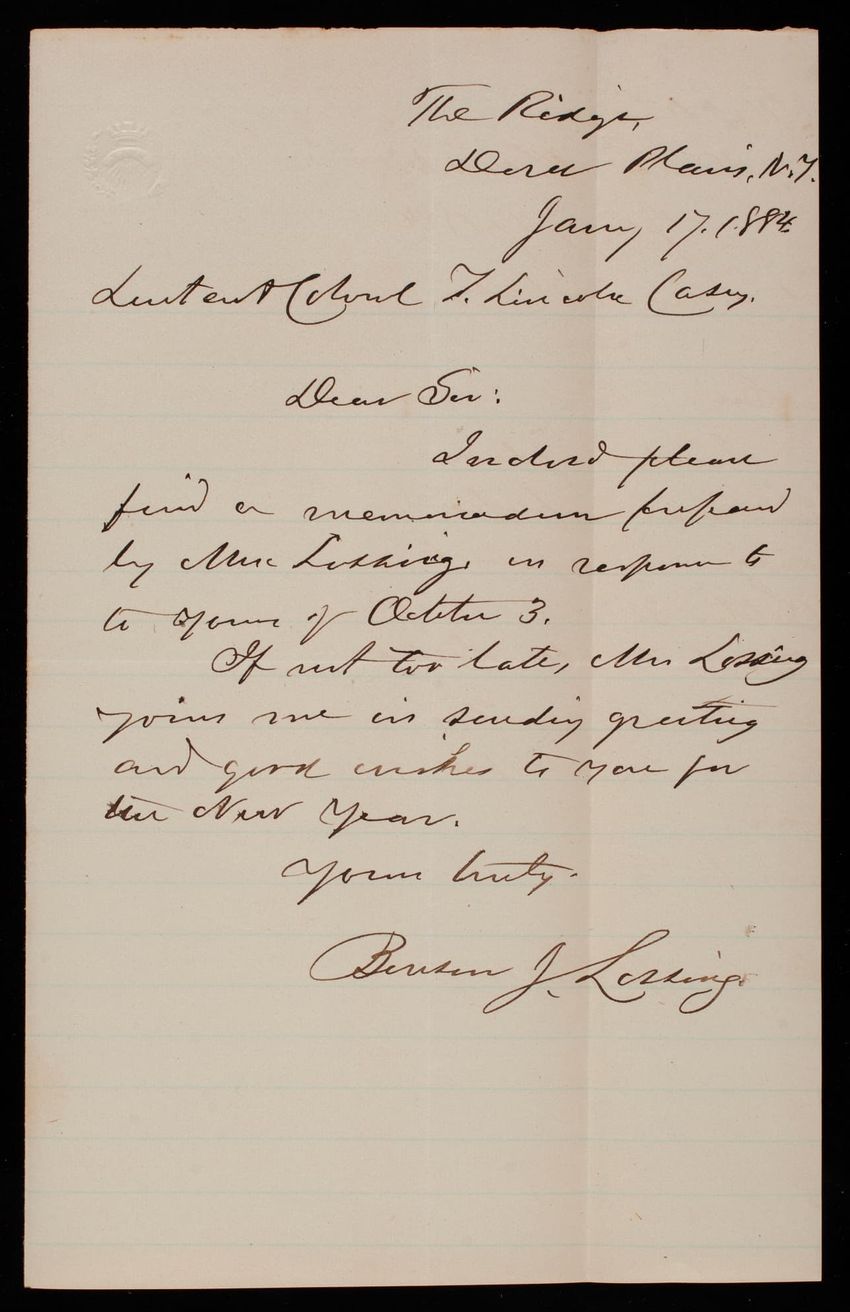 The Ridge,
Dover Plains, N.Y.
Jany 17. 1884.
Lieutenant Colonel T. Lincoln Casey.
Dear Sir:
Inclosed please
find a memorandum prepared
by Mrs Lossing, in response to
to yours of October 3.
If not too late, Mrs Lossing
joins me in sending greeting
and good wishes to you for
the New Year.
Yours truly.
Benson J. Lossing.